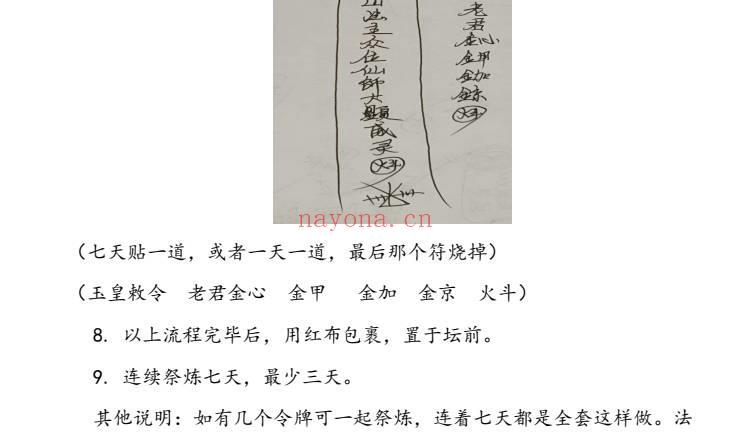 法主众位仙师大显威灵
火斗
老君
金心
金甲
金加
金京
火斗
nayona.cn
（七天贴一道，或者一天一道，最后那个符烧掉）
（玉皇敕令 老君金心 金甲 金加 金京 火斗）
8. 以上流程完毕后，用红布包裹，置于坛前。
9. 连续祭炼七天，最少三天。
其他说明：如有几个令牌可一起祭炼，连着七天都是全套这样做。法